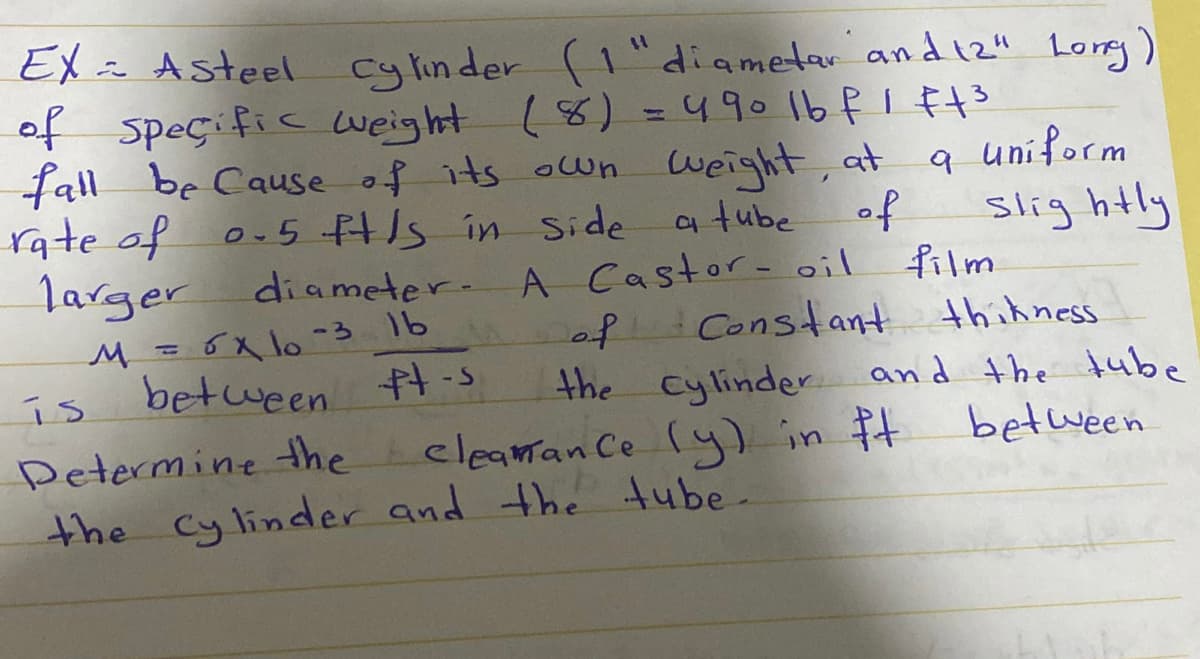 EX = A steel cylinder (1" diametar and 12" Long)
of speçific weight (8) = 490 lb f / ft3
fall be Cause of its own weight, at a uniform
rate of 0.5 ft/s in side a tube of slightly
larger diameter. A Castor-oil film
M = 6x10-3 lb/ft-s of Constant thikness
is between the cylinder and the tube
Determine the clearrance (y) in ft between
the cylinder and the tube.